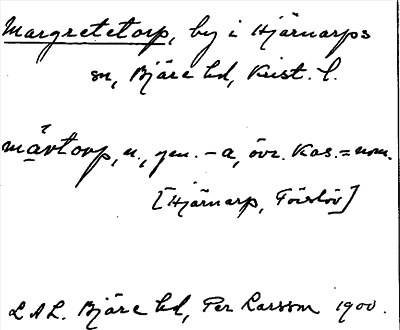 Margretetorp, by i Hjärnarps
sn, Bjäre hd, Krist. l.
mávtorp, n., gen. -a, övr. kas. = nom.
[Hjärnarp, Förslöv]
LAL. Bjäre hd, Per Larsson 1900.